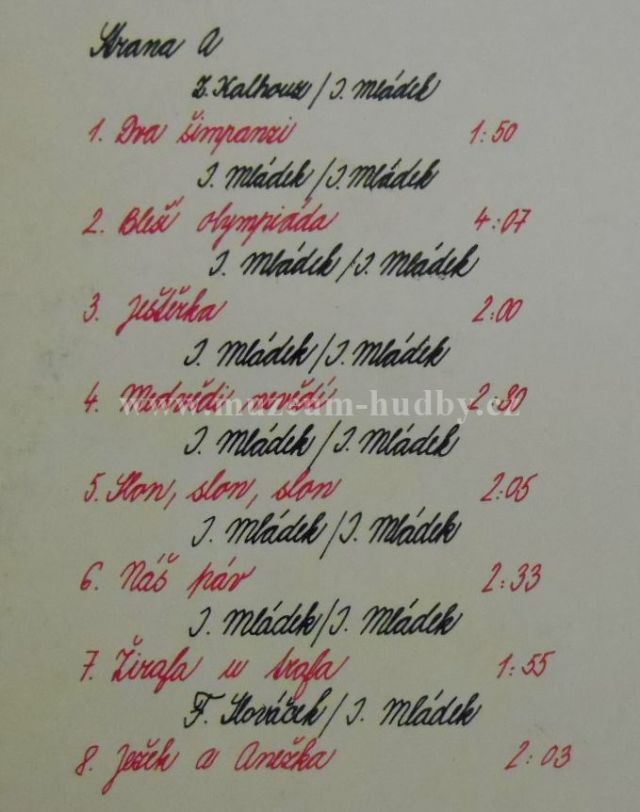 Strana A
Z. Kalhouz / I. Mládek
1. Dva šimpanzi 1:50
I. Mládek / I. Mládek
2. Bleší olympiáda 4:07
I. Mládek / I. Mládek
3. Ještěrka 2:00
I. Mládek / I. Mládek
4. Medvědi nevědí 2:30
www.muzeum-hudby.cz
I. Mládek / I. Mládek
5. Slon, slon, slon 2:05
I. Mládek / I. Mládek
6. Náš páv 2:33
I. Mládek / I. Mládek
7. Žirafa u trafa 1:55
F. Slováček / I. Mládek
8. Ježek a Anežka 2:03